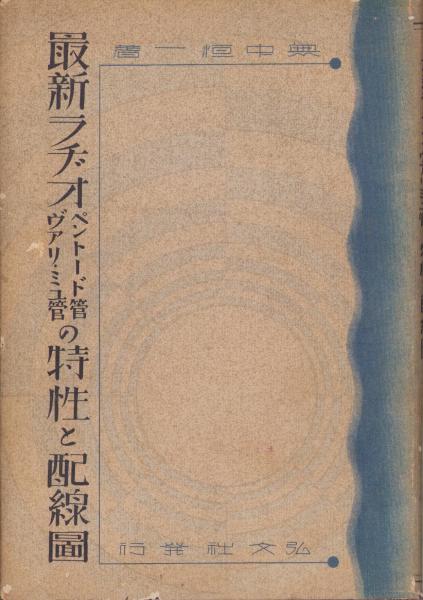 無中恒一著
最新ラヂオ
ペントード管
ヴァリ・ミュ管
の特性と配線圖
弘文社發行